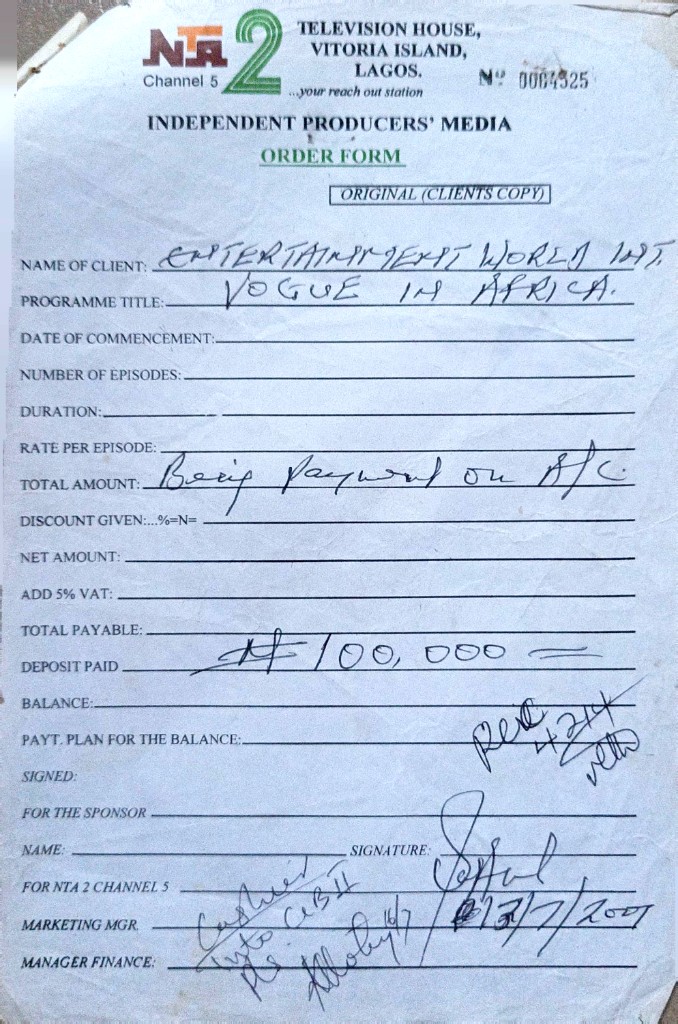 NTA 2
Channel 5
TELEVISION HOUSE,
VITORIA ISLAND,
LAGOS.
...your reach out station
Nº 0004325
INDEPENDENT PRODUCERS' MEDIA
ORDER FORM
ORIGINAL (CLIENTS COPY)
NAME OF CLIENT: ENTERTAINMENT WORLD INT.
PROGRAMME TITLE: VOGUE IN AFRICA.
DATE OF COMMENCEMENT:
NUMBER OF EPISODES:
DURATION:
RATE PER EPISODE:
TOTAL AMOUNT: Being payment on A/C.
DISCOUNT GIVEN:...%=N=
NET AMOUNT:
ADD 5% VAT:
TOTAL PAYABLE:
DEPOSIT PAID ₦100,000 =
BALANCE:
PAYT. PLAN FOR THE BALANCE:
4214
SIGNED:
FOR THE SPONSOR
NAME: SIGNATURE:
FOR NTA 2 CHANNEL 5
Cashier
MARKETING MGR. 16/7 13/7/2007
into
MANAGER FINANCE:
Pls.